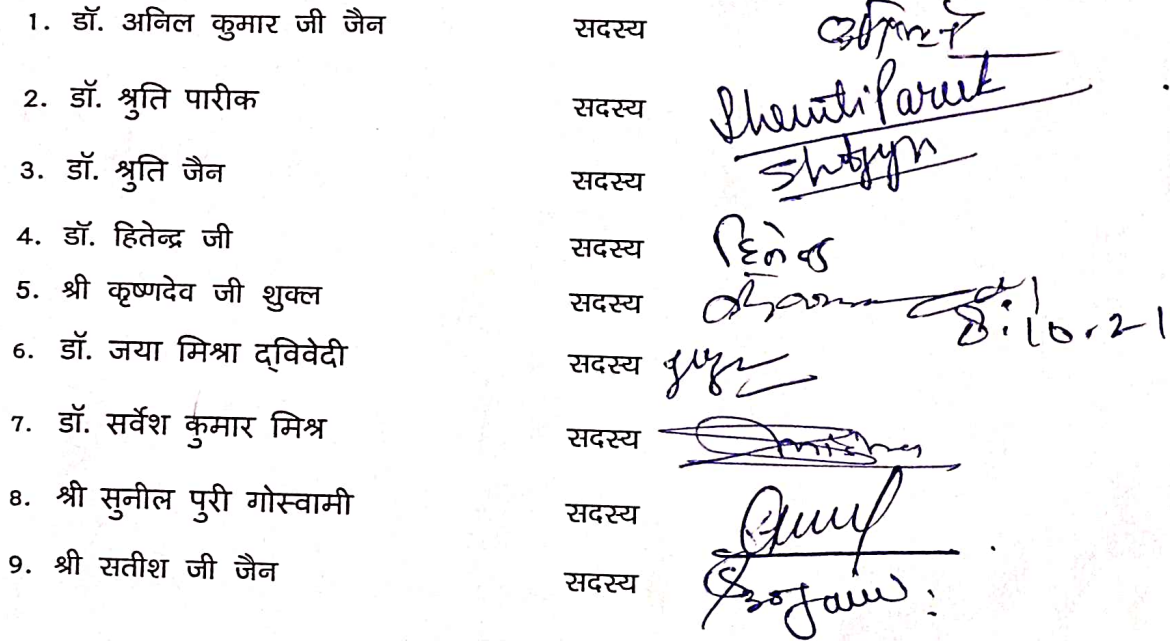 1. डॉ. अनिल कुमार जी जैन सदस्य
2. डॉ. श्रुति पारीक सदस्य Shruti Pareek
3. डॉ. श्रुति जैन सदस्य
4. डॉ. हितेन्द्र जी सदस्य
5. श्री कृष्णदेव जी शुक्ल सदस्य 8.10.21
6. डॉ. जया मिश्रा द्विवेदी सदस्य
7. डॉ. सर्वेश कुमार मिश्र सदस्य
8. श्री सुनील पुरी गोस्वामी सदस्य
9. श्री सतीश जी जैन सदस्य